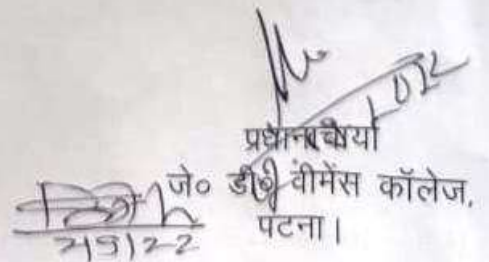 प्रधानाचार्या
जे० डी० वीमेंस कॉलेज,
पटना।
2/9/22